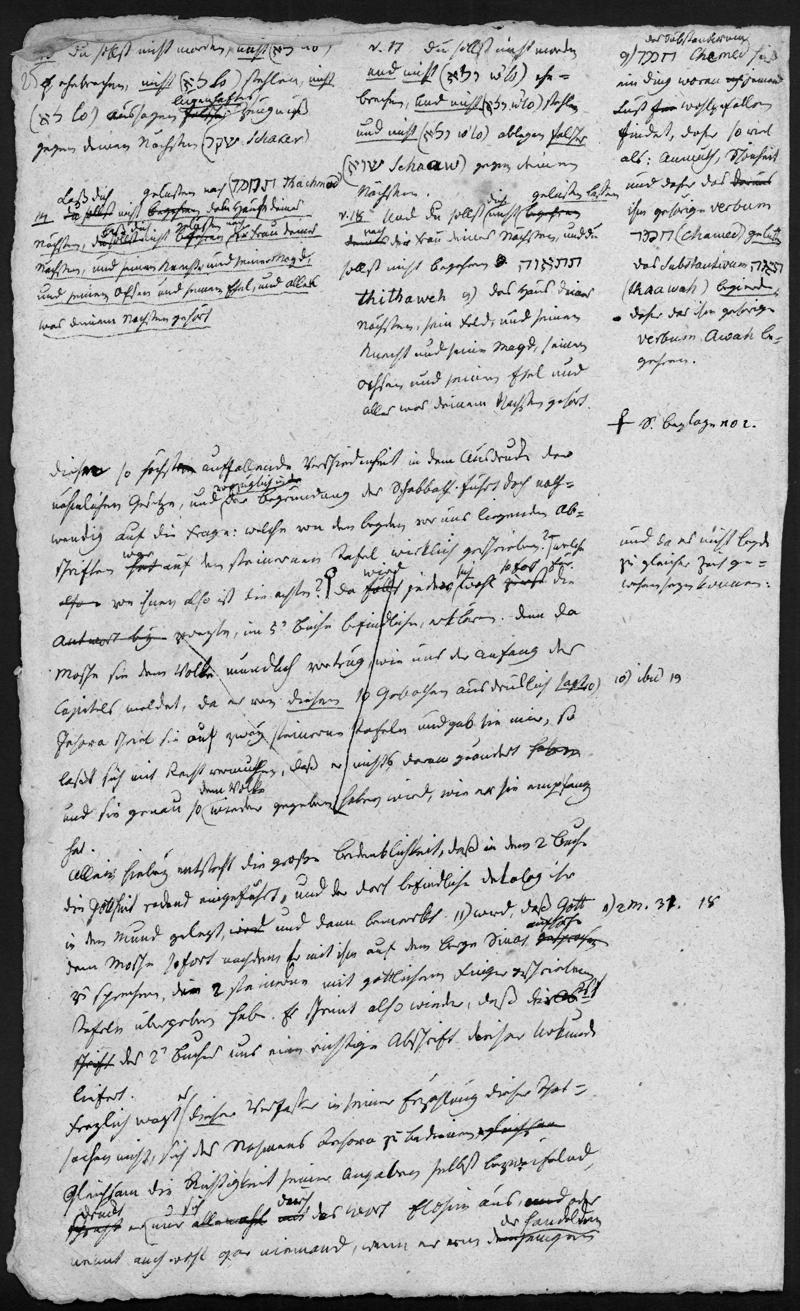 du sollst nicht morden, nicht (לא lo)
ehebrechen, nicht (לא lo) stehlen, nicht
(לא lo) aussagen lügenhaftes Zeugniß
gegen deinen Nächsten (שקר Schaker)
14 Laß dich nicht gelusten nach (תחמד Thachmod) dem Hause deines
Nächsten, laß dich nicht gelusten nach der Frau deines
Nächsten, und seines Knechts, und seiner Magd,
und seines Ochsen und seines Esel, und alles
was deinem Nächsten gehört
v. 17 Du sollst nicht morden
und nicht (ולא w'lo) ehe-
brechen, und nicht (ולא w'lo) stehlen
und nicht (ולא w'lo) ablegen falsches
(שוא Schaaw) gegen deinen
Nächsten.
v. 18. Und du sollst dich nicht gelusten lassen
nach die Frau deines Nächsten, und du
sollst nicht begehren תתאוה
thithaweh 9) das Haus deines
Nächsten, sein Feld, und seinen
Knecht und seine Magd, seinen
Ochsen und seinen Esel und
alles was deinem Nächsten gehört.
das Substantivum
9) חמד Chemed heißt
ein Ding woran jemand
Lust Wohlgefallen
findet, daher so viel
als: Anmuth, Schönheit
und daher das
ihm gehörige verbum
חמד (chamed) gelüsten
das Substantivum תאוה
(thaawah) begierde,
daher das ihm gehörige
verbum Awah be-
gehren.
S. Beylage no 2.
diese so höchst auffallende Verschiedenheit in dem Ausdrucke der
nähmlichen Gesetze, und vorzüglich in der Begründung des Schabbath führt doch noth-
wendig auf die Frage: welche von den beyden vor uns liegenden Ab-
schriften war auf den steinernen Tafel wirklich geschrieben? welche
von ihnen also ist die ächte? da wird jeder wohl sofort für die
zweyte, im 5n Buche befindliche, erklären. denn da
Moshe sie dem Volke mündlich vortrug, wie uns der Anfang des
Capitels meldet, da er von diesen 10 Gebothen ausdrücklich sagt 10)
Jehova schrieb sie auf zwey steinerne Tafeln und gab sie mir, so
läßt sich mit Recht vermuthen, daß er nichts daran geändert
und sie genau so dem Volke wieder gegeben haben wird, wie er sie empfing
hat.
und da es nicht beyde
zu gleicher Zeit ge-
wesen seyn können:
10) ibid 19
Allein hiebey entsteht die große Bedenklichkeit, daß in dem 2 Buche
die Gottheit redend eingeführt, und der dort befindliche dekalog ihr
in den Mund gelegt, und dann bemerkt 11) wird, daß Gott
dem Moshe sofort nachdem Er mit ihm auf dem Berge Sinai aufhörte
zu sprechen, die 2 steinerne mit göttlichem Finger geschrieben
Tafeln übergeben habe. Es scheint also wieder, daß die
des 2n Buches uns eine richtige Abschrift dieser Urkunde
liefert.
11) 2 M. 31. 18
Freylich wagt es dieser Verfasser in seiner Erzählung dieser That-
sachen nicht, sich des Nahmens Jehova zu bedienen
Gleichsam die Richtigkeit seiner Angaben selbst bezweifelnd,
drückt er sich nur durch das Wort Elohim aus, oder
nennt auch wohl gar niemand, wenn er von der handelnden